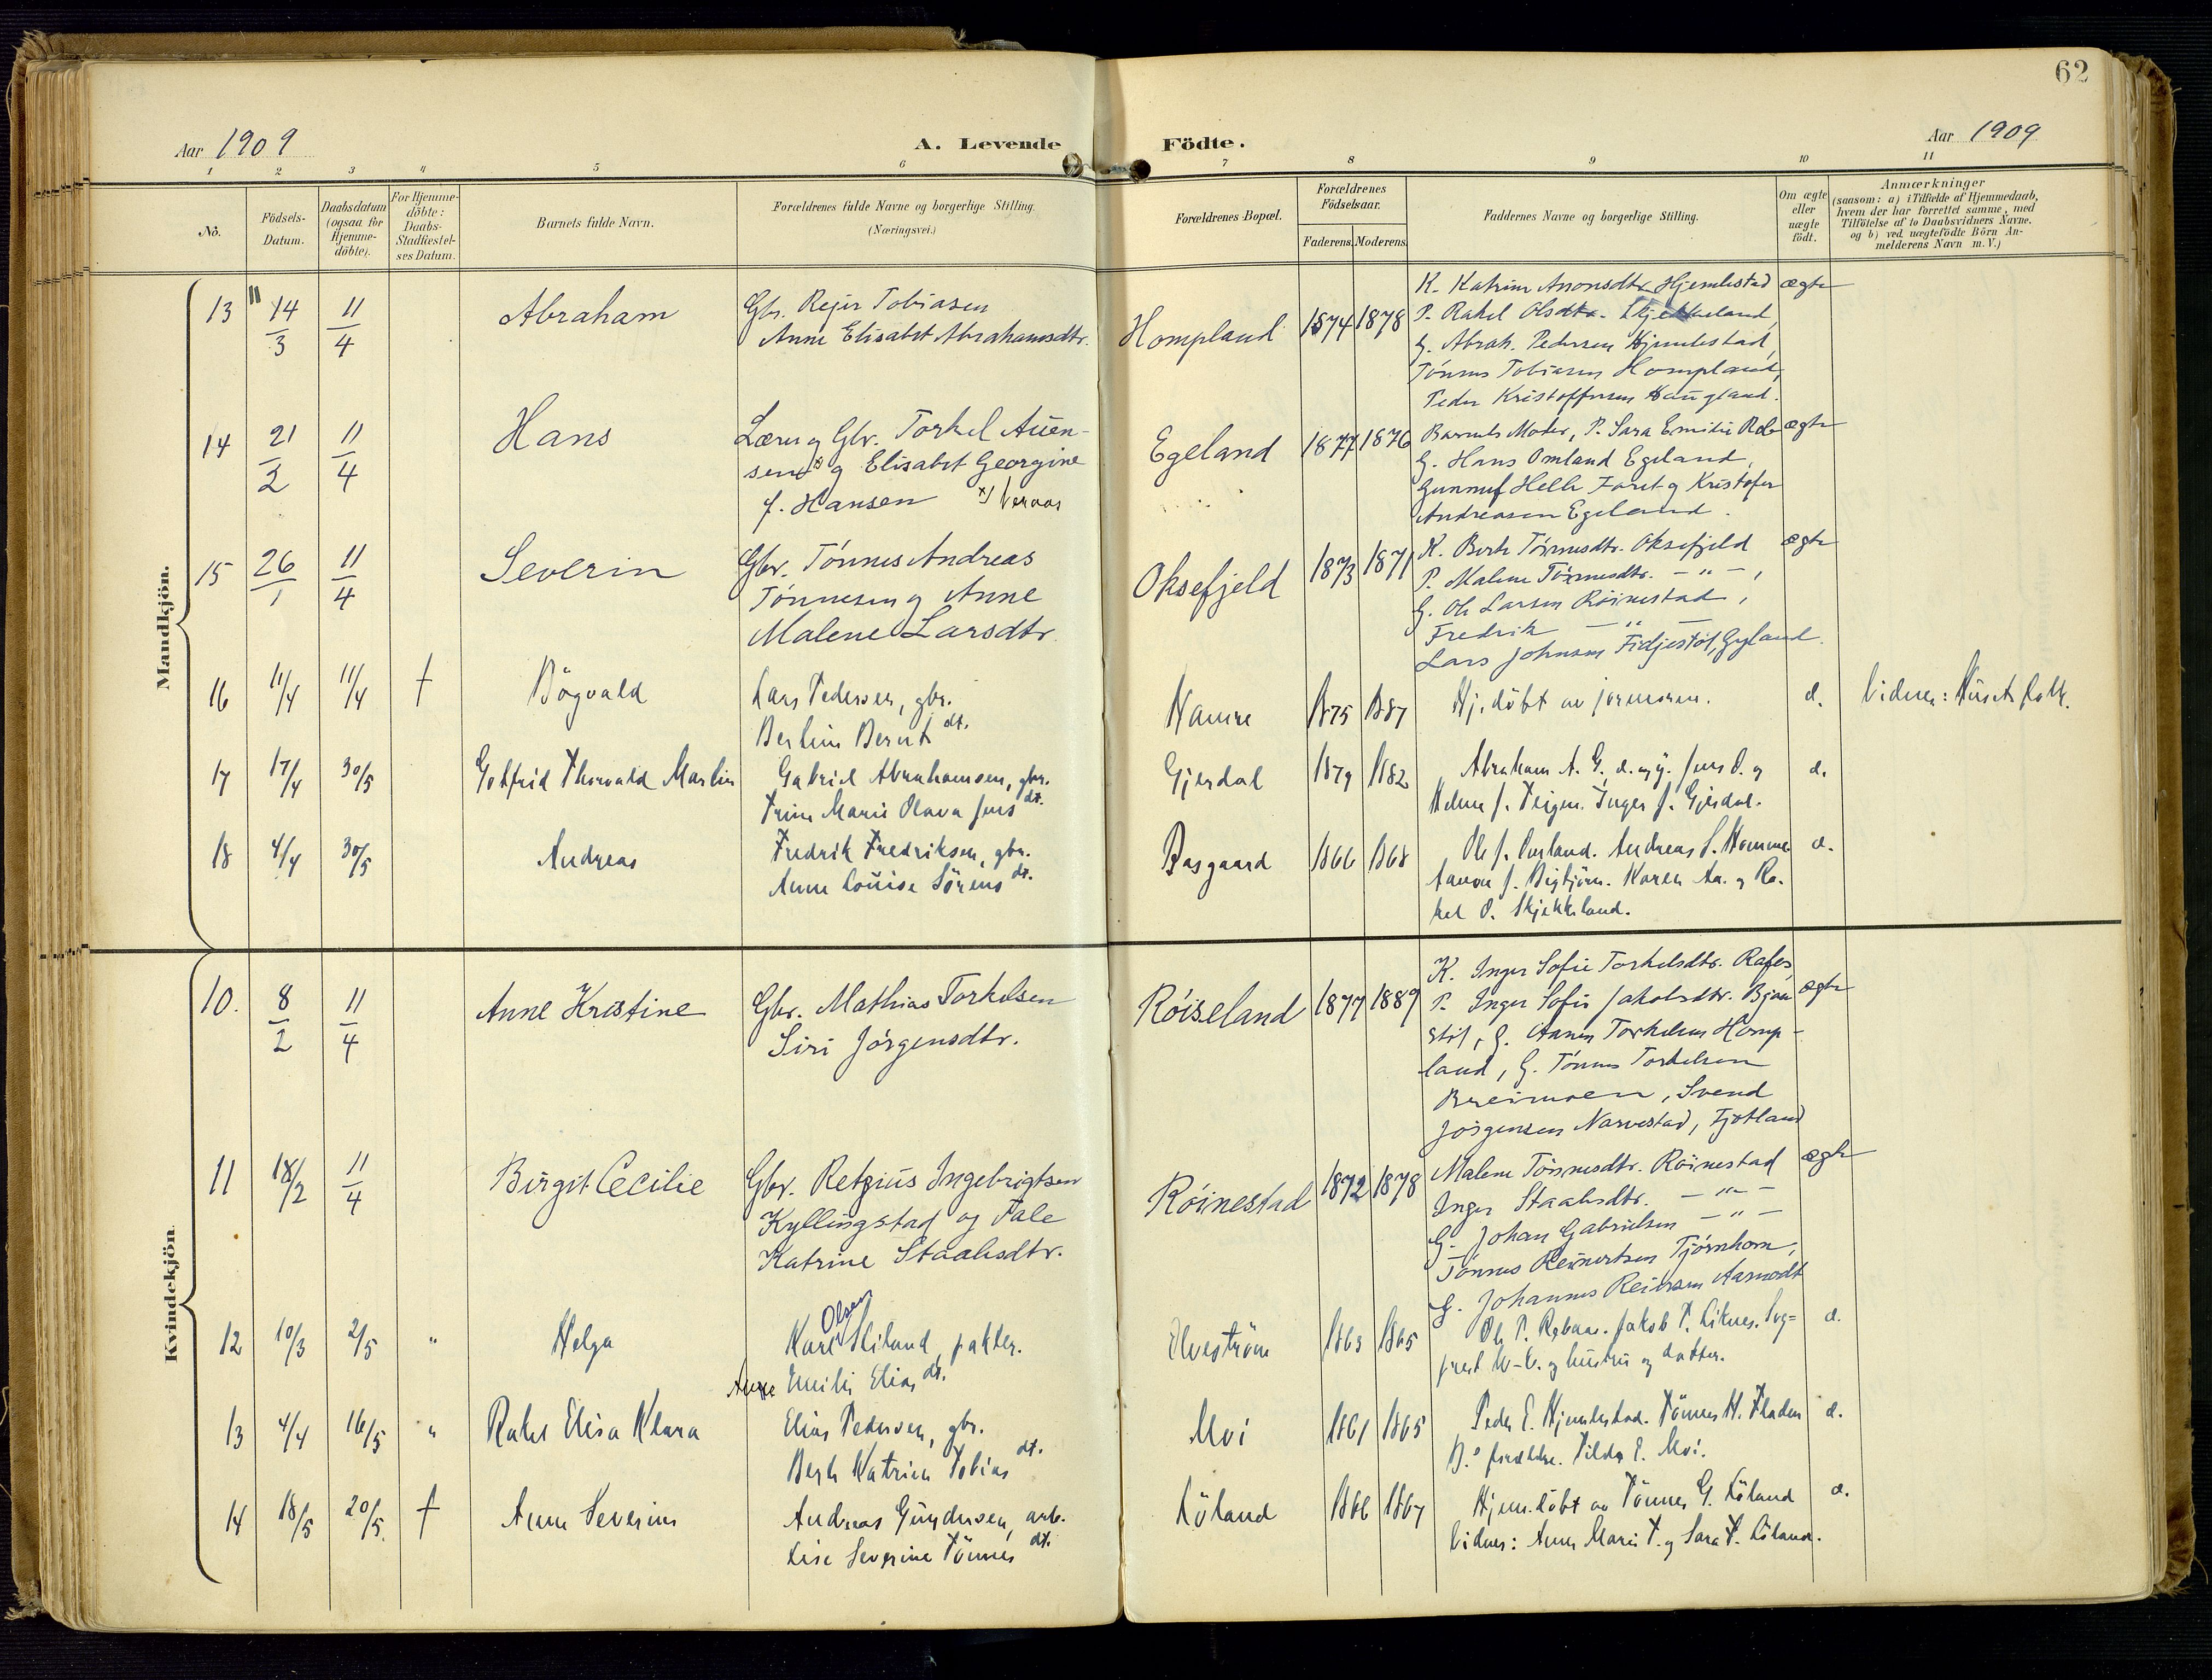 62
Aar 1909
A. Levende Födte.
Aar 1909
1 2 3 4 5 6 7 8 9 10 11
No.
Födsels-
Datum.
Daabsdatum
(ogsaa for
Hjemme-
döbte).
For Hjemme-
döbte:
Daabs-
Stadfæstel-
ses Datum.
Barnets fulde Navn.
Forældrenes fulde Navne og borgerlige Stilling.
(Næringsvei.)
Forældrenes Bopæl.
Forældrenes
Födselsaar.
Faderens. Moderens.
Faddernes Navne og borgerlige Stilling.
Om ægte
eller
uægte
födt.
Anmærkninger
(saasom: a) i Tilfælde af Hjemmedaab,
hvem der har forrettet samme, med
Tilföielse af to Daabsvidners Navne.
og b) ved uægtefödte Börn An-
melderens Navn m. V.)
Mandkjön.
13 14/3 11/4 Abraham
Gbr. Rejer Tobiasen
Anne Elisabet Abrahamsdtr.
Hompland 1874 1878
K. Katrine Aronsdtr. Hjemlestad ægte
P. Rakel Olsdtr. Skjekkeland,
G. Abrah. Pedersen Hjemlestad,
Tónnes Tobiasen Hompland,
Peder Kristoffersen Haugland.
14 21/2 11/4 Hans
Lærer og Gbr. Torkel Auen-
sen x) og Elisabet Georgine
f. Hansen x) Veraas
Egeland 1877 1876
Barnets Moder, P. Sara Emilie ægte
G. Hans Omland Egeland,
Gunnuf Helle Faret og Kristofer
Andreasen Egeland.
15 26/1 11/4 Severin
Gbr. Tónnes Andreas
Tónnesen og Anne
Malene Larsdtr.
Oksefjeld 1873 1871
K. Berte Tónnesdtr. Oksefjeld ægte
P. Malene Tónnesdtr. — " —,
G. Ole Larsen Róinestad,
Fredrik — " —
Lars Johnsen Fidjestöl, Gyland.
16 11/4 11/4 † Bögvald
Lars Pedersen, gbr.
Berlin Bernt dt.
Haugre 1875 1887
Hj. döbt av jormoren. æ.
Vidner: Husets folk.
17 17/4 30/5 Gotfrid Thorvald Martin
Gabriel Abrahamsen, gbr.
Trine Marie Olava Jens dt.
Gjerdal 1879 1882
Abraham A. G., æ. og y. Jens O. og æ.
Helene J. Teigen. Inger J. Gjerdal.
18 4/4 30/5 Andreas
Fredrik Fredriksen, gbr.
Anne Louise Sörens dt.
Aasgaard 1866 1868
Ole J. Omland. Andreas S. Homme æ.
Aanon J. Bigtjörn. Karen Aa. og Ra-
kel O. Skjekkeland.
Kvindekjön
10. 8/2 11/4 Anne Kristine
Gbr. Mathias Torkelsen
Siri Jórgensdtr.
Róiseland 1877 1889
K. Inger Sofie Torkelsdtr. Rafos,
P. Inger Sofie Jakobsdtr. Bjon ægte
stöl, G. Aanen Torkelsen Homp-
land, G. Tónnes Torkelsen
Breimoen, Svend
Jórgensen Narvestad, Fjotland
11 18/2 11/4 Birgit Cecilie
Gbr. Retzius Ingebrigtsen
Kyllingstad og Tale
Katrine Staalesdtr.
Róinestad 1872 1878
Malene Tónnesdtr. Róinestad ægte
Inger Staalesdtr. — " —
G. Johan Gabrielsen — " —
Tónnes Reinertsen Tjórnhom,
G. Johannes Reiersen Aamodt
12 10/3 2/5 " Helga
Karl Olsen Stiland, pakter.
Anne Emilie Elias dt.
Elveström 1863 1865
Ole P. Röbaar. Jakob P. Liknes. Sog- æ.
prest W-C. og hustru og datter.
13 4/4 16/5 " Rakel Elisa Klara
Elias Pedersen, gbr.
Berte Katrine Tobias dt.
Moi 1861 1865
Peder E. Hjemlestad. Tönnes H. Fladen æ.
B.s foreldre. Tilda E. Moi.
14 18/5 20/5 † Anne Severine
Andreas Gundersen, arb.
Lise Severine Tönnes dt.
Löland 1866 1867
Hjem.döbt av Tönnes G. Löland æ.
Vidner: Anne Marie T. og Sara T. Löland.